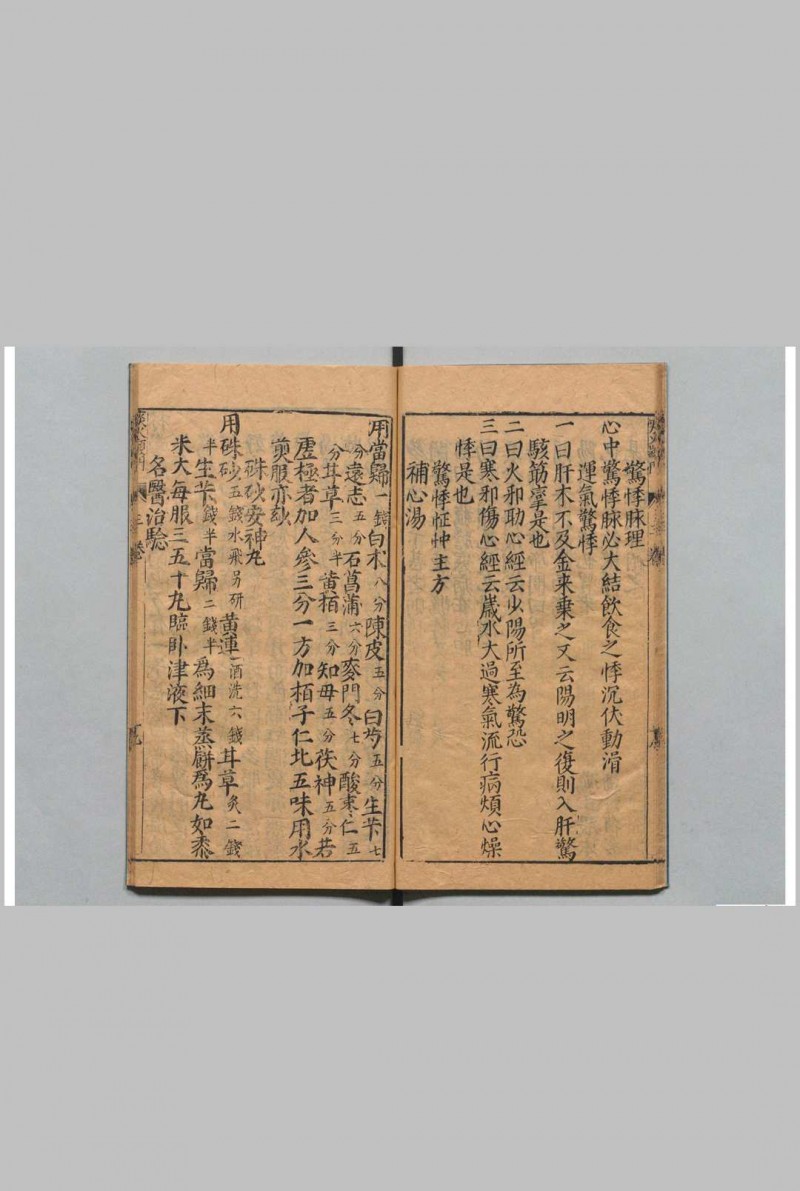 驚悸脉理
心中驚悸脉必大結飲食之悸沉伏動滑
運氣驚悸
一曰肝木不及金来乗之又云陽明之復則入肝驚
駭筋攣是也
二曰火邪助心經云少陽所至為驚恐
三曰寒邪傷心經云歳水大過寒氣流行病煩心燥
悸是也
驚悸怔忡主方
補心湯
用當歸一錢白朮八分陳皮五分白芍五分生芐七
分遠志五分石菖蒲六分麥門冬七分酸棗仁五
分甘草三分半黄栢三分知母五分茯神五分若
虚極者加人參三分一方加栢子仁北五味用水
煎服亦玅
硃砂安神丸
用硃砂五錢水飛另研黄連酒洗六錢甘草炙二錢
半生芐錢半當歸二錢半為細末蒸餅為丸如黍
米大每服三五十丸臨卧津液下
名醫治驗